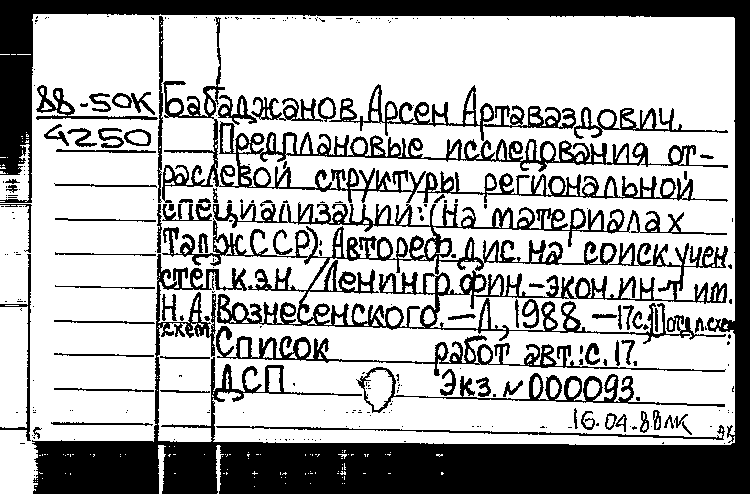 88-50К Бабаджанов, Арсен Артаваздович.
4250 Предплановые исследования от-
раслевой структуры региональной
специализации: (На материалах
ТаджССР): Автореф. дис. на соиск. учен.
степ. к.э.н. / Ленингр. фин.-экон. ин-т им.
Н.А. Вознесенского. — Л., 1988. — 17 с.,
схем
Список работ авт.: с. 17.
ДСП Экз. № 000093.
16.04.88